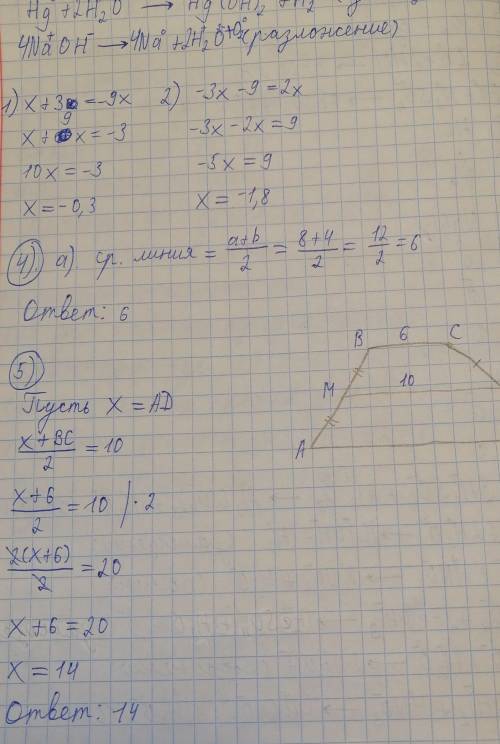 Hg + 2H₂O → Hg(OH)₂ + H₂
4NaOH → 4Na + 2H₂O + O₂ (разложение)
1) x + 3 = -9x
x + 9x = -3
10x = -3
x = -0,3
2) -3x - 9 = 2x
-3x - 2x = 9
-5x = 9
x = -1,8
4) а) ср. линия = (a+b)/2 = (8+4)/2 = 12/2 = 6
Ответ: 6
5)
Пусть x = AD
(x + BC)/2 = 10
(x + 6)/2 = 10 / · 2
2(x + 6)/2 = 20
x + 6 = 20
x = 14
Ответ: 14
B 6 C
M 10
A